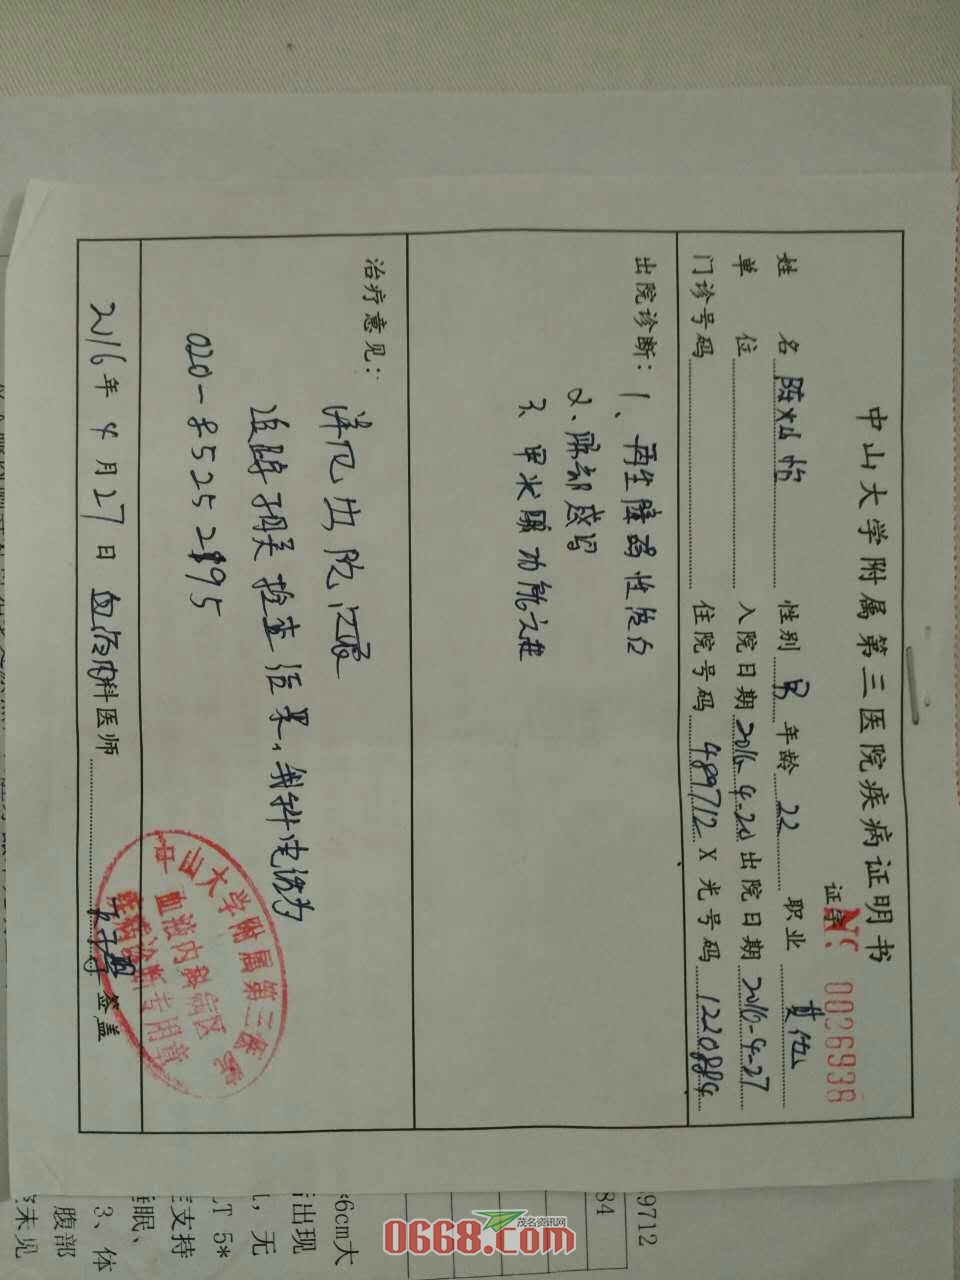 中山大学附属第三医院疾病证明书
证字 NO 0036938
姓 名 陈灿怡 性别 男 年龄 22 职业 其他
单 位 入院日期 2016-4-20 出院日期 2016-4-27
门诊号码 住院号码 489712 X光号码 1220884
出院诊断：1、再生障碍性贫血
2、肺部感染
3、甲状腺功能亢进
治疗意见：
详见出院记录
追踪相关检查结果，我科电话为
020-85252895
2016年4月27日 血液内科医师 签盖
中山大学附属第三医院
血液内科病区
疾病诊断专用章
9712
84
*6cm大
出现
，无
CT 5*
支持
睡眠、
3、体
腹部
未见
茂名资讯网
0668.com